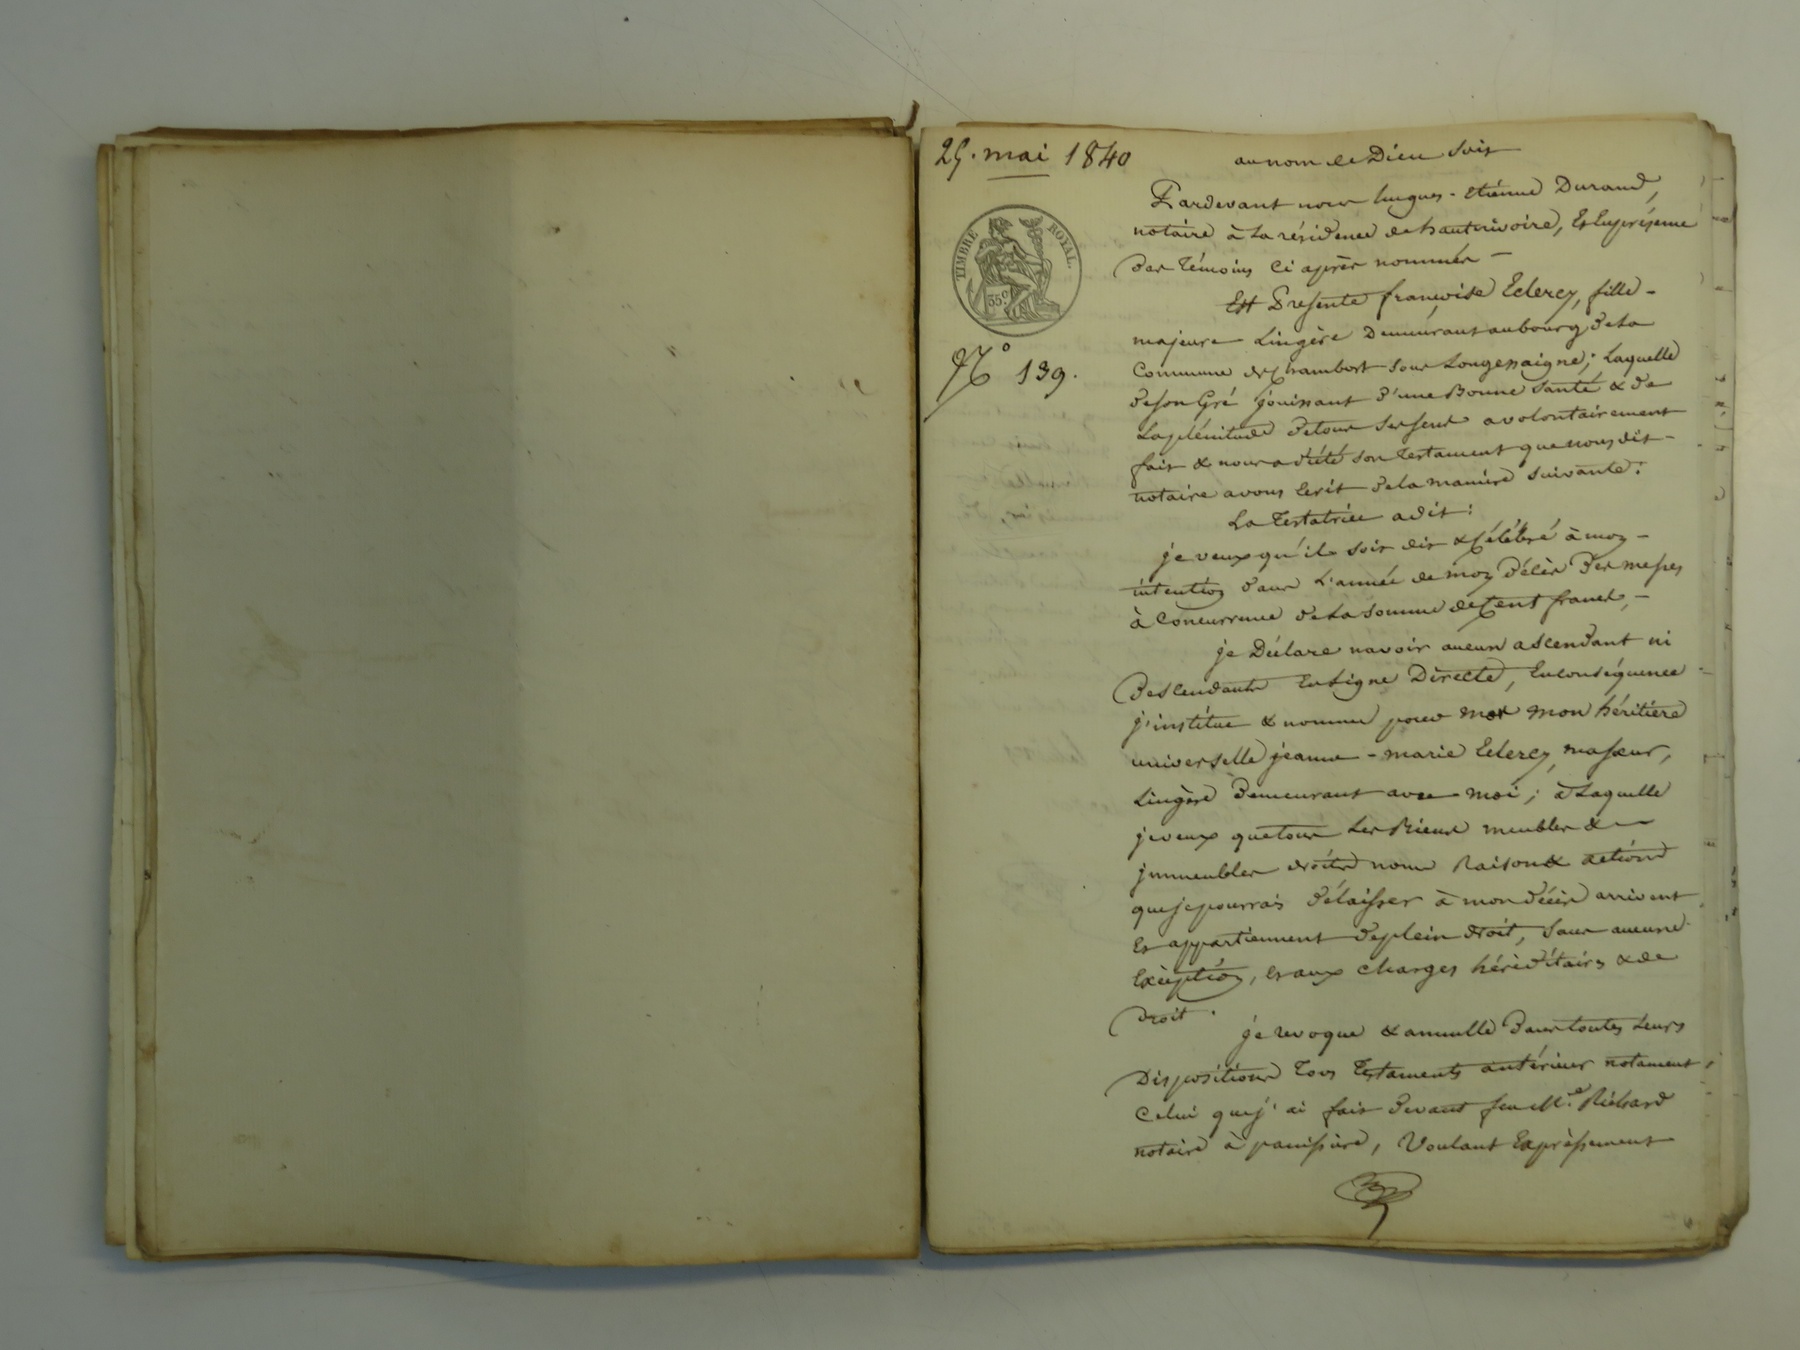 29. mai 1840
au nom de Dieu soit
TIMBRE ROYAL.
35 c
N° 139.
Pardevant nous hugues-Etienne Durand,
notaire à la résidence de hauterivoire, Et En présence
des témoins ci après nommés —
Est Presente françoise Eclercy, fille -
majeure Lingère Demeurant au bourg de la
Commune de Chambost sous Longessaigne; Laquelle
de son Gré jouissant d'une Bonne Santé & de
La plénitude de tous ses sens a volontairement
fait & nous a dicté son testament que nous dit -
notaire avons Ecrit de la manière suivante:
La testatrice a dit:
je veux qu'il soit dit & Célébré à mon -
intention dans L'année de mon décès des messes
à Concurrence de la somme de Cent francs, -
je Déclare n'avoir aucun ascendant ni
Descendants En Ligne Directe, En conséquence
j'institue & nomme pour mon héritière
universelle jeanne-marie Eclercy, ma sœur,
Lingère Demeurant avec moi; à Laquelle
je veux que tous Les Biens meubles &
jmmeubles droits noms Raisons & actions
que je pourrais délaisser à mon décès arrivent
Et appartiennent de plein droit, sans aucune
Exception, et aux charges héréditaires & de
Droit.
je revoque & annulle Dans toutes Leurs
Dispositions tous Testaments antérieurs notament,
Celui que j'ai fait devant feu Me. Richard
notaire à panissière, Voulant Expréssement